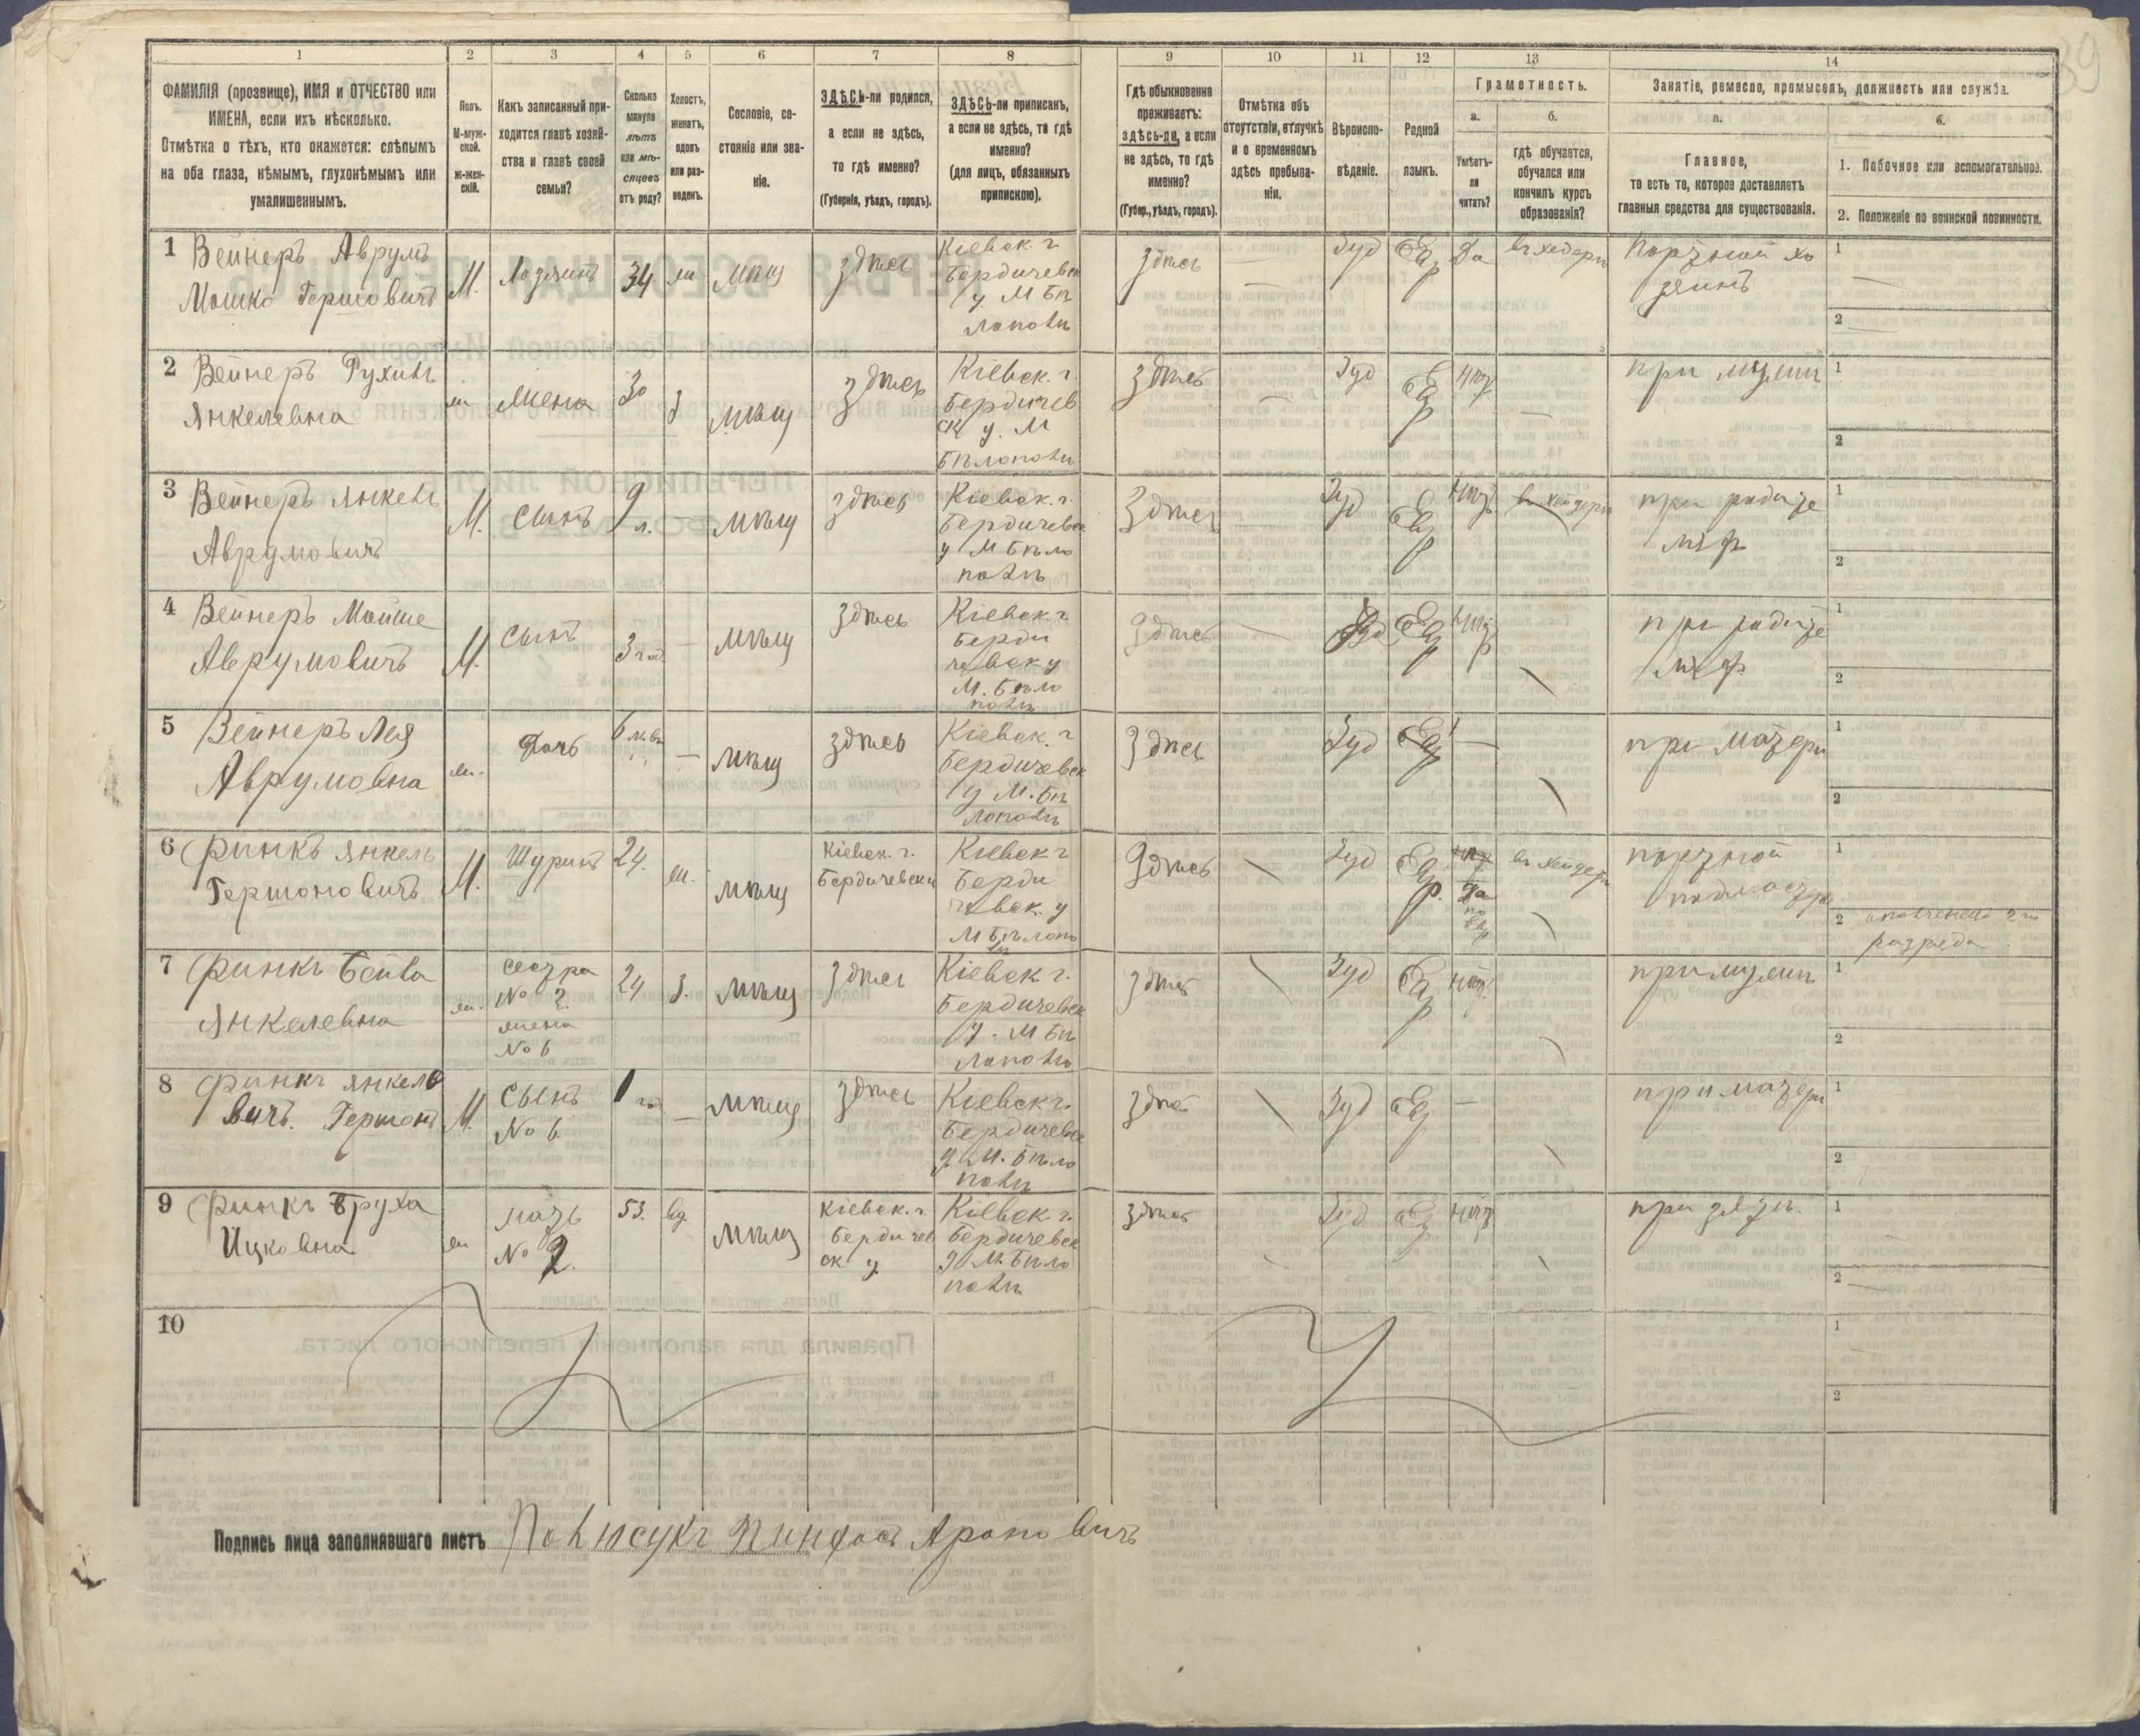 39
1 2 3 4 5 6 7 8 9 10 11 12 13 14
ФАМИЛІЯ (прозвище), ИМЯ и ОТЧЕСТВО или
ИМЕНА, если ихъ нѣсколько.
Отмѣтка о тѣхъ, кто окажется: слѣпымъ
на оба глаза, нѣмымъ, глухонѣмымъ или
умалишеннымъ.
Полъ.
М-муж-
ской.
ж-жен-
скій.
Какъ записанный при-
ходится главѣ хозяй-
ства и главѣ своей
семьи?
Сколько
минуло
лѣтъ
или мѣ-
сяцевъ
отъ роду?
Холостъ,
женатъ,
вдовъ
или раз-
веденъ.
Сословіе, со-
стояніе или зва-
ніе.
ЗДѢСЬ-ли родился,
а если не здѣсь,
то гдѣ именно?
(Губернія, уѣздъ, городъ).
ЗДѢСЬ-ли приписанъ,
а если не здѣсь, то гдѣ
именно?
(для лицъ, обязанныхъ
припискою).
Гдѣ обыкновенно
проживаетъ:
здѣсь-ли, а если
не здѣсь, то гдѣ
именно?
(Губер., уѣздъ, городъ).
Отмѣтка объ
отсутствіи, отлучкѣ
и о временномъ
здѣсь пребыва-
ніи.
Вѣроиспо-
вѣданіе.
Родной
языкъ.
Грамотность.
а.
Умѣетъ-
ли
читать?
б.
гдѣ обучается,
обучался или
кончилъ курсъ
образованія?
Занятіе, ремесло, промыселъ, должность или служба.
а.
Главное,
то есть то, которое доставляетъ
главныя средства для существованія.
б.
1. Побочное или вспомогательное.
2. Положеніе по воинской повинности.
1 Вейнеръ Аврумъ
Мошко Гершовичъ
М. 34 ж мѣщ здѣсь
Кіевск. г.
Бердичевск
у М Бѣ
лополь
здѣсь — Іуд Евр Да въ хедере
Портной хо
зяинъ
1
2
2 Вейнеръ Рухиль
Янкелевна
ж жена 30 з мѣщ здѣсь
Кіевск. г.
Бердичев
ск у. М
Бѣлополь
здѣсь — Іуд Евр нѣт —
при мужи
1
2
3 Вейнеръ Янкель
Аврумовичъ
М. сынъ 9 л. — мѣщ здѣсь
Кіевск. г.
Бердичевск
у М Бѣло
поль
Здѣсь — Іуд Евр нѣт въ хейдере
при родите
лях
1
2
4 Вейнеръ Мойше
Аврумовичъ
М. сынъ 3 год — мѣщ здѣсь
Кіевск г
Берди
чевск у
М. Бѣло
поль
здѣсь — Іуд Евр нѣт
при родите
лях
1
2
5 Вейнеръ Лея
Аврумовна
ж. Дочь 6 — мѣщ здѣсь
Кіевск. г
Бердичевск
у М. Бѣ
лополь
здѣсь Іуд Евр —
при матери
1
2
6 Финкъ Янкель
Гершоновичъ
М. Шуринъ 24. ж. мѣщ
Кіевск. г.
Бердичевск
Кіевск г
Берди
чевск. у
М Бѣлопо
ль
здѣсь Іуд Евр. Да въ хейдере
портной
подмастер
1
2 ополченец 2го
разряда
7 Финкъ Бейла
Янкелевна
ж.
сестра
№ 2
жена
№ 6
24 з. мѣщ здѣсь
Кіевск г.
Бердичевск
у. М Бѣ
лополь
здѣсь Іуд Евр нѣт
при мужи
1
2
8 Финкъ Янкеле
вичъ. Гершонъ
М.
сынъ
№ 6
1 год — мѣщ здѣсь
Кіевск г.
Бердичевск
у М. Бѣло
поль
здѣсь Іуд Евр —
при матери
1
2
9 Финкъ Бруха
Ицковна
ж
мать
№ 2.
53. вд. мѣщ
Кіевск. г.
Бердичев
ск у.
Кіевск г.
Бердичевск
у М. Бѣло
поль
здѣсь Іуд Евр нѣт
при зятѣ.
1
2
10
1
2
Подпись лица заполнявшаго листъ Пинхасъ Ароновичъ